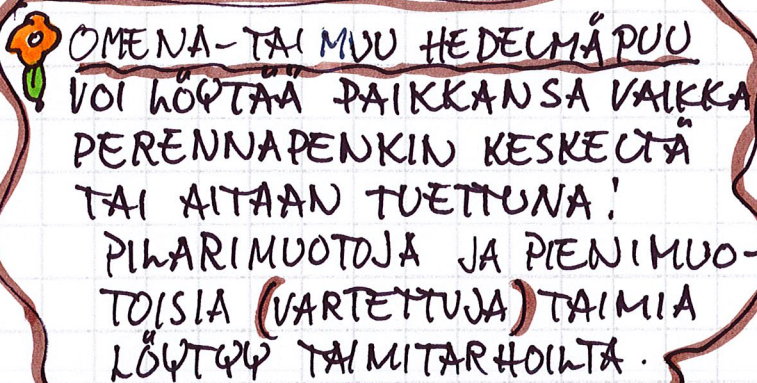 OMENA- TAI MUU HEDELMÄPUU
VOI LÖYTÄÄ PAIKKANSA VAIKKA
PERENNAPENKIN KESKELTÄ
TAI AITAAN TUETTUNA!
PILARIMUOTOJA JA PIENIMUO-
TOISIA (VARTETTUJA) TAIMIA
LÖYTYY TAIMITARHOILTA.